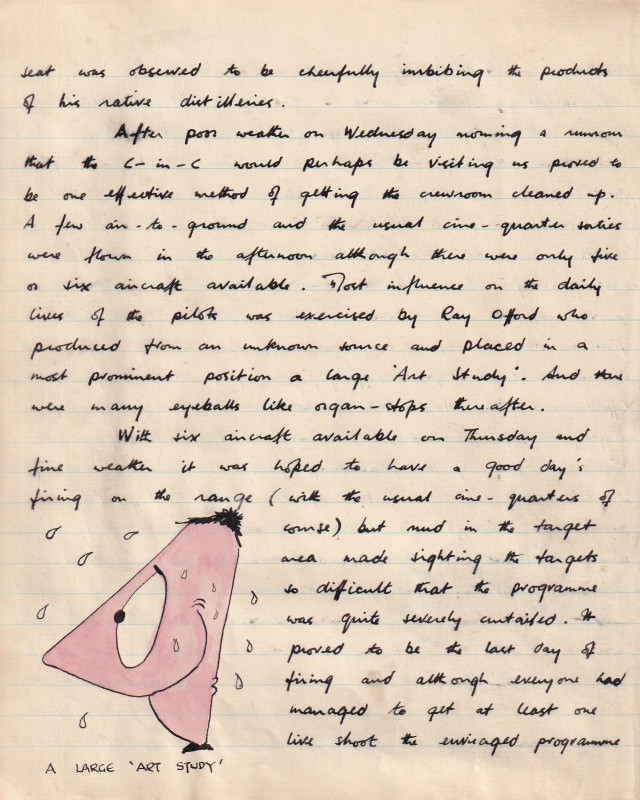 seat was observed to be cheerfully imbibing the products
of his native distilleries.
After poor weather on Wednesday morning a rumour
that the C-in-C would perhaps be visiting us proved to
be one effective method of getting the crewroom cleaned up.
A few air-to-ground and the usual cine-quarter sorties
were flown in the afternoon although there were only five
or six aircraft available. Most influence on the daily
lives of the pilots was exercised by Ray Offord who
produced from an unknown source and placed in a
most prominent position a large 'Art Study'. And there
were many eyeballs like organ-stops thereafter.
With six aircraft available on Thursday and
fine weather it was hoped to have a good day's
firing on the range (with the usual cine-quarters of
course) but mud in the target
area made sighting the targets
so difficult that the programme
was quite severely curtailed. It
proved to be the last day of
firing and although everyone had
managed to get at least one
live shoot the envisaged programme
A LARGE 'ART STUDY'